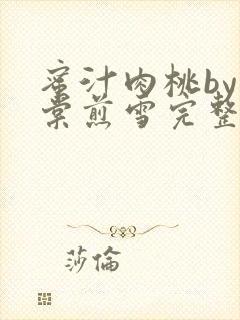 蜜汁肉桃by
棠煎雪完整
莎倫